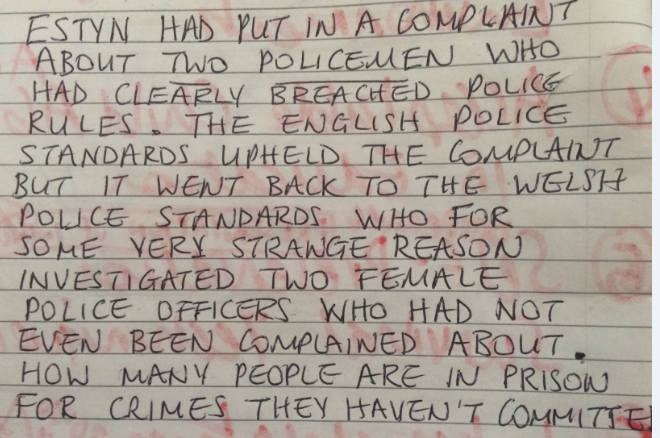 ESTYN HAD PUT IN A COMPLAINT
ABOUT TWO POLICEMEN WHO
HAD CLEARLY BREACHED POLICE
RULES. THE ENGLISH POLICE
STANDARDS UPHELD THE COMPLAINT
BUT IT WENT BACK TO THE WELSH
POLICE STANDARDS WHO FOR
SOME VERY STRANGE REASON
INVESTIGATED TWO FEMALE
POLICE OFFICERS WHO HAD NOT
EVEN BEEN COMPLAINED ABOUT.
HOW MANY PEOPLE ARE IN PRISON
FOR CRIMES THEY HAVEN'T COMMITTE